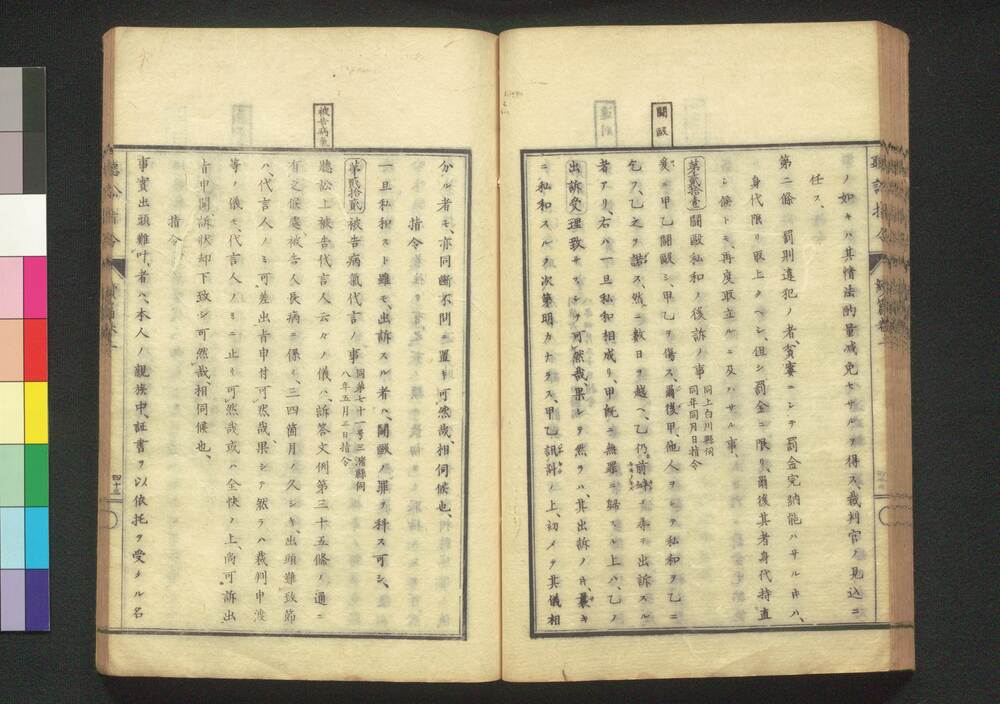 鬪毆
ノ如キハ其情法酌量減免セサルヲ得ス、裁判官ノ見込ニ
任ス、
第二條 罰則違犯ノ者、貧寠ニシテ罰金完納能ハサル片ハ、
身代限リ取上クヘシ、但シ罰金ニ限リ、爾後其者身代持直
シ候トモ、再度取立ルニ及ハサル事、
第貳拾壹 鬪毆私和ノ後訴ノ事 同上白川縣伺 同年同月日指令
爰ニ甲乙鬪毆シ、甲乙ヲ傷ス、爾後甲、他人ヲシテ私和ヲ乙ニ
乞フ、乙之ヲ諾ス、然ニ數日ヲ越ヘ、乙仍前
出訴スル
者アリ、右ハ一旦私和相成リ、甲既ニ無罪ニ歸スル上ハ、乙ノ
出訴受理致サスシテ可然哉、果シテ然ラハ、其出訴ノ片、曩キ
ニ私和スルノ次第明カナラス、甲乙訊糾ノ上、初メテ其儀相
被告病氣
分ル者モ、亦同斷不問ニ置キ可然哉、相伺候也、
指令
一旦私和スト雖モ、出訴スル者ハ、鬪毆ノ罪ヲ科ス可シ、
第貳拾貳 被告病氣代言ノ事 同第七十一号三潴縣伺 八年五月三日指令
聽訟上被告代言人云々ノ儀ハ、訴答文例第三十五條ノ通ニ
有之候處、被告人長病ニ係リ、三四箇月ノ久シキ、出頭難致節
ハ、代言人ノミ可差出旨申付可然哉、果シテ然ラハ裁判申渡
等ノ儀モ、代言人ノミニ止リ可然哉、或ハ全快ノ上、尚可訴出
旨申聞、訴狀却下致シ可然哉、相伺候也、
指令
事實出頭難叶者ハ、本人ノ親族中、証書ヲ以依托ヲ受タル名
四十三